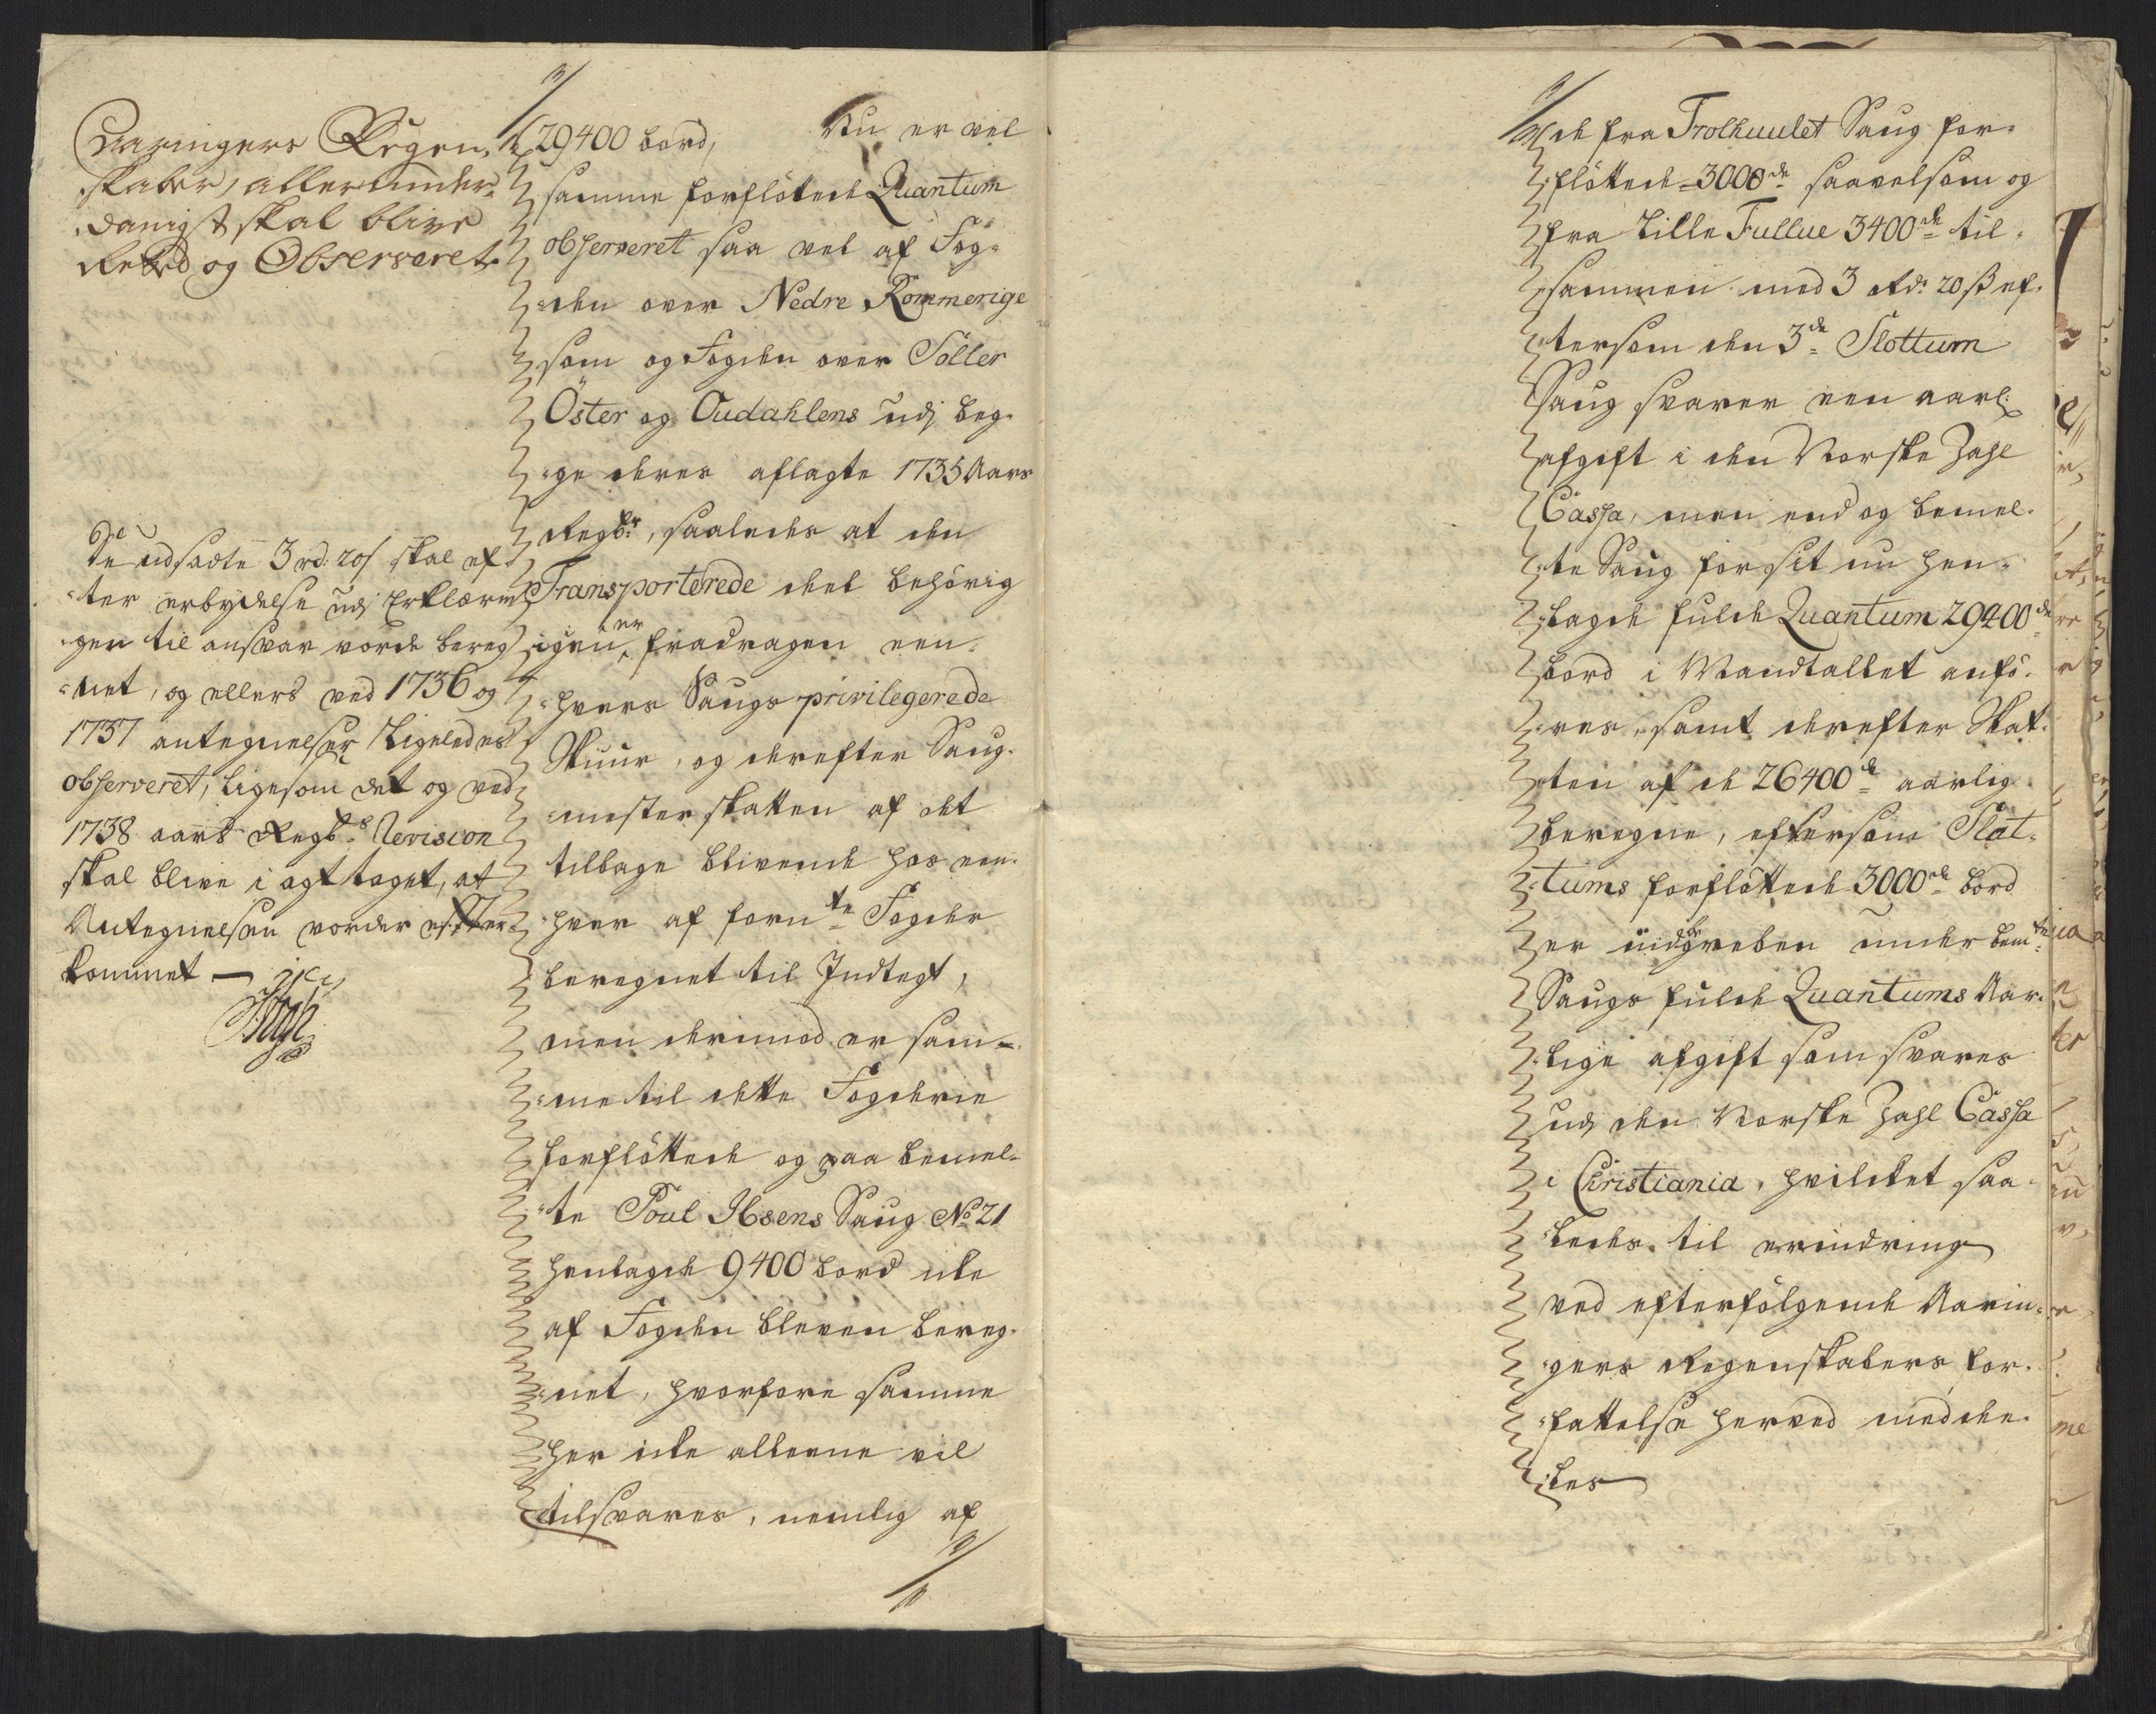 Aaringers Regen-
skaber, allerunder-
danigst skal blive
Rettet og Observeret.
De udsadte 3 rd: 20 s skal ef-
ter erbydelse udj Erklærin-
gen til ansvar vorde bereg-
net, og ellers ved 1736 og
1737 antegnelser Ligeledes
observeret, ligesom det og ved
1738 aars Regb:s Revision
skal blive i agt taget, at
Antegnelsen vorder efter-
kommet —
29400 bord, Nu er vel
samme forflötede Quantum
observeret saa vel af Fog-
den over Nedre Rommerige
som og Fogden over Soller
Öster og Oudahlens udj beg-
ge deres aflagte 1735 Aars
Regb:r, saaledes at den
Transporterede deel behörig
igien er fradragen een-
hvers Saugs privilegerede
Skuur, og derefter Saug-
mester skatten af det
tilbage blivende hos een-
hver af forn:te Fogder
beregnet til Indtegt,
men derimod er sam-
me til dette Fogderie
forflöttede og paa bemel-
te Poul Ibsens Saug No 21
henlagde 9400 bord icke
af Fogden bleven bereg-
net, hvorfore samme
her icke alleene vil
tilsvares, nemlig af
de fra Trolhuulet Saug for-
flöttede 3000de saavelsom og
fra Lille Fullue 3400de til-
sammen med 3 Rd: 20 ß ef-
tersom den 3de Slottum
Saug svarer een aarl:
afgift i den Norske Zahl
Cassa, men end og bemel-
te Saug for sit nu hen-
lagde fulde Quantum 29400de
bord i Mandtallet anfö-
res, samt derefter Skat-
ten af de 26400de aarlig
beregne, eftersom Slat-
tums forflöttede 3000de bord
er indgreben under bem:te
Saugs fulde Quantums Aar-
lige afgift som svares
udj den Norske Zahl Cassa
i Christiania, hvilcket saa-
ledes til erindring
ved efterfölgende Aarin-
gers Regenskabers for-
fattelse herved medde-
les